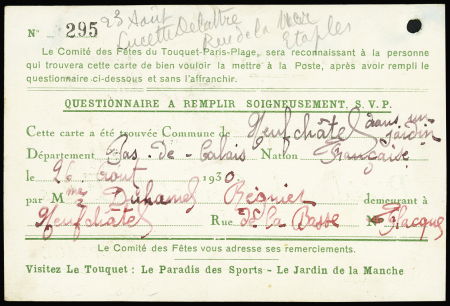 N° 295 23 Août
Lucette Delattre
Rue de la Mer
Etaples
Le Comité des Fêtes du Touquet-Paris-Plage, sera reconnaissant à la personne
qui trouvera cette carte de bien vouloir la mettre à la Poste, après avoir rempli le
questionnaire ci-dessous et sans l'affranchir.
QUESTIONNAIRE A REMPLIR SOIGNEUSEMENT, S. V. P.
Cette carte a été trouvée Commune de Neufchâtel dans un jardin
Département Pas-de-Calais Nation Française
le 26 aout 1930
par Mme Duhamel Régnier demeurant à
Neufchâtel Rue de la Basse N° Jacques
Le Comité des Fêtes vous adresse ses remerciements.
Visitez Le Touquet : Le Paradis des Sports - Le Jardin de la Manche